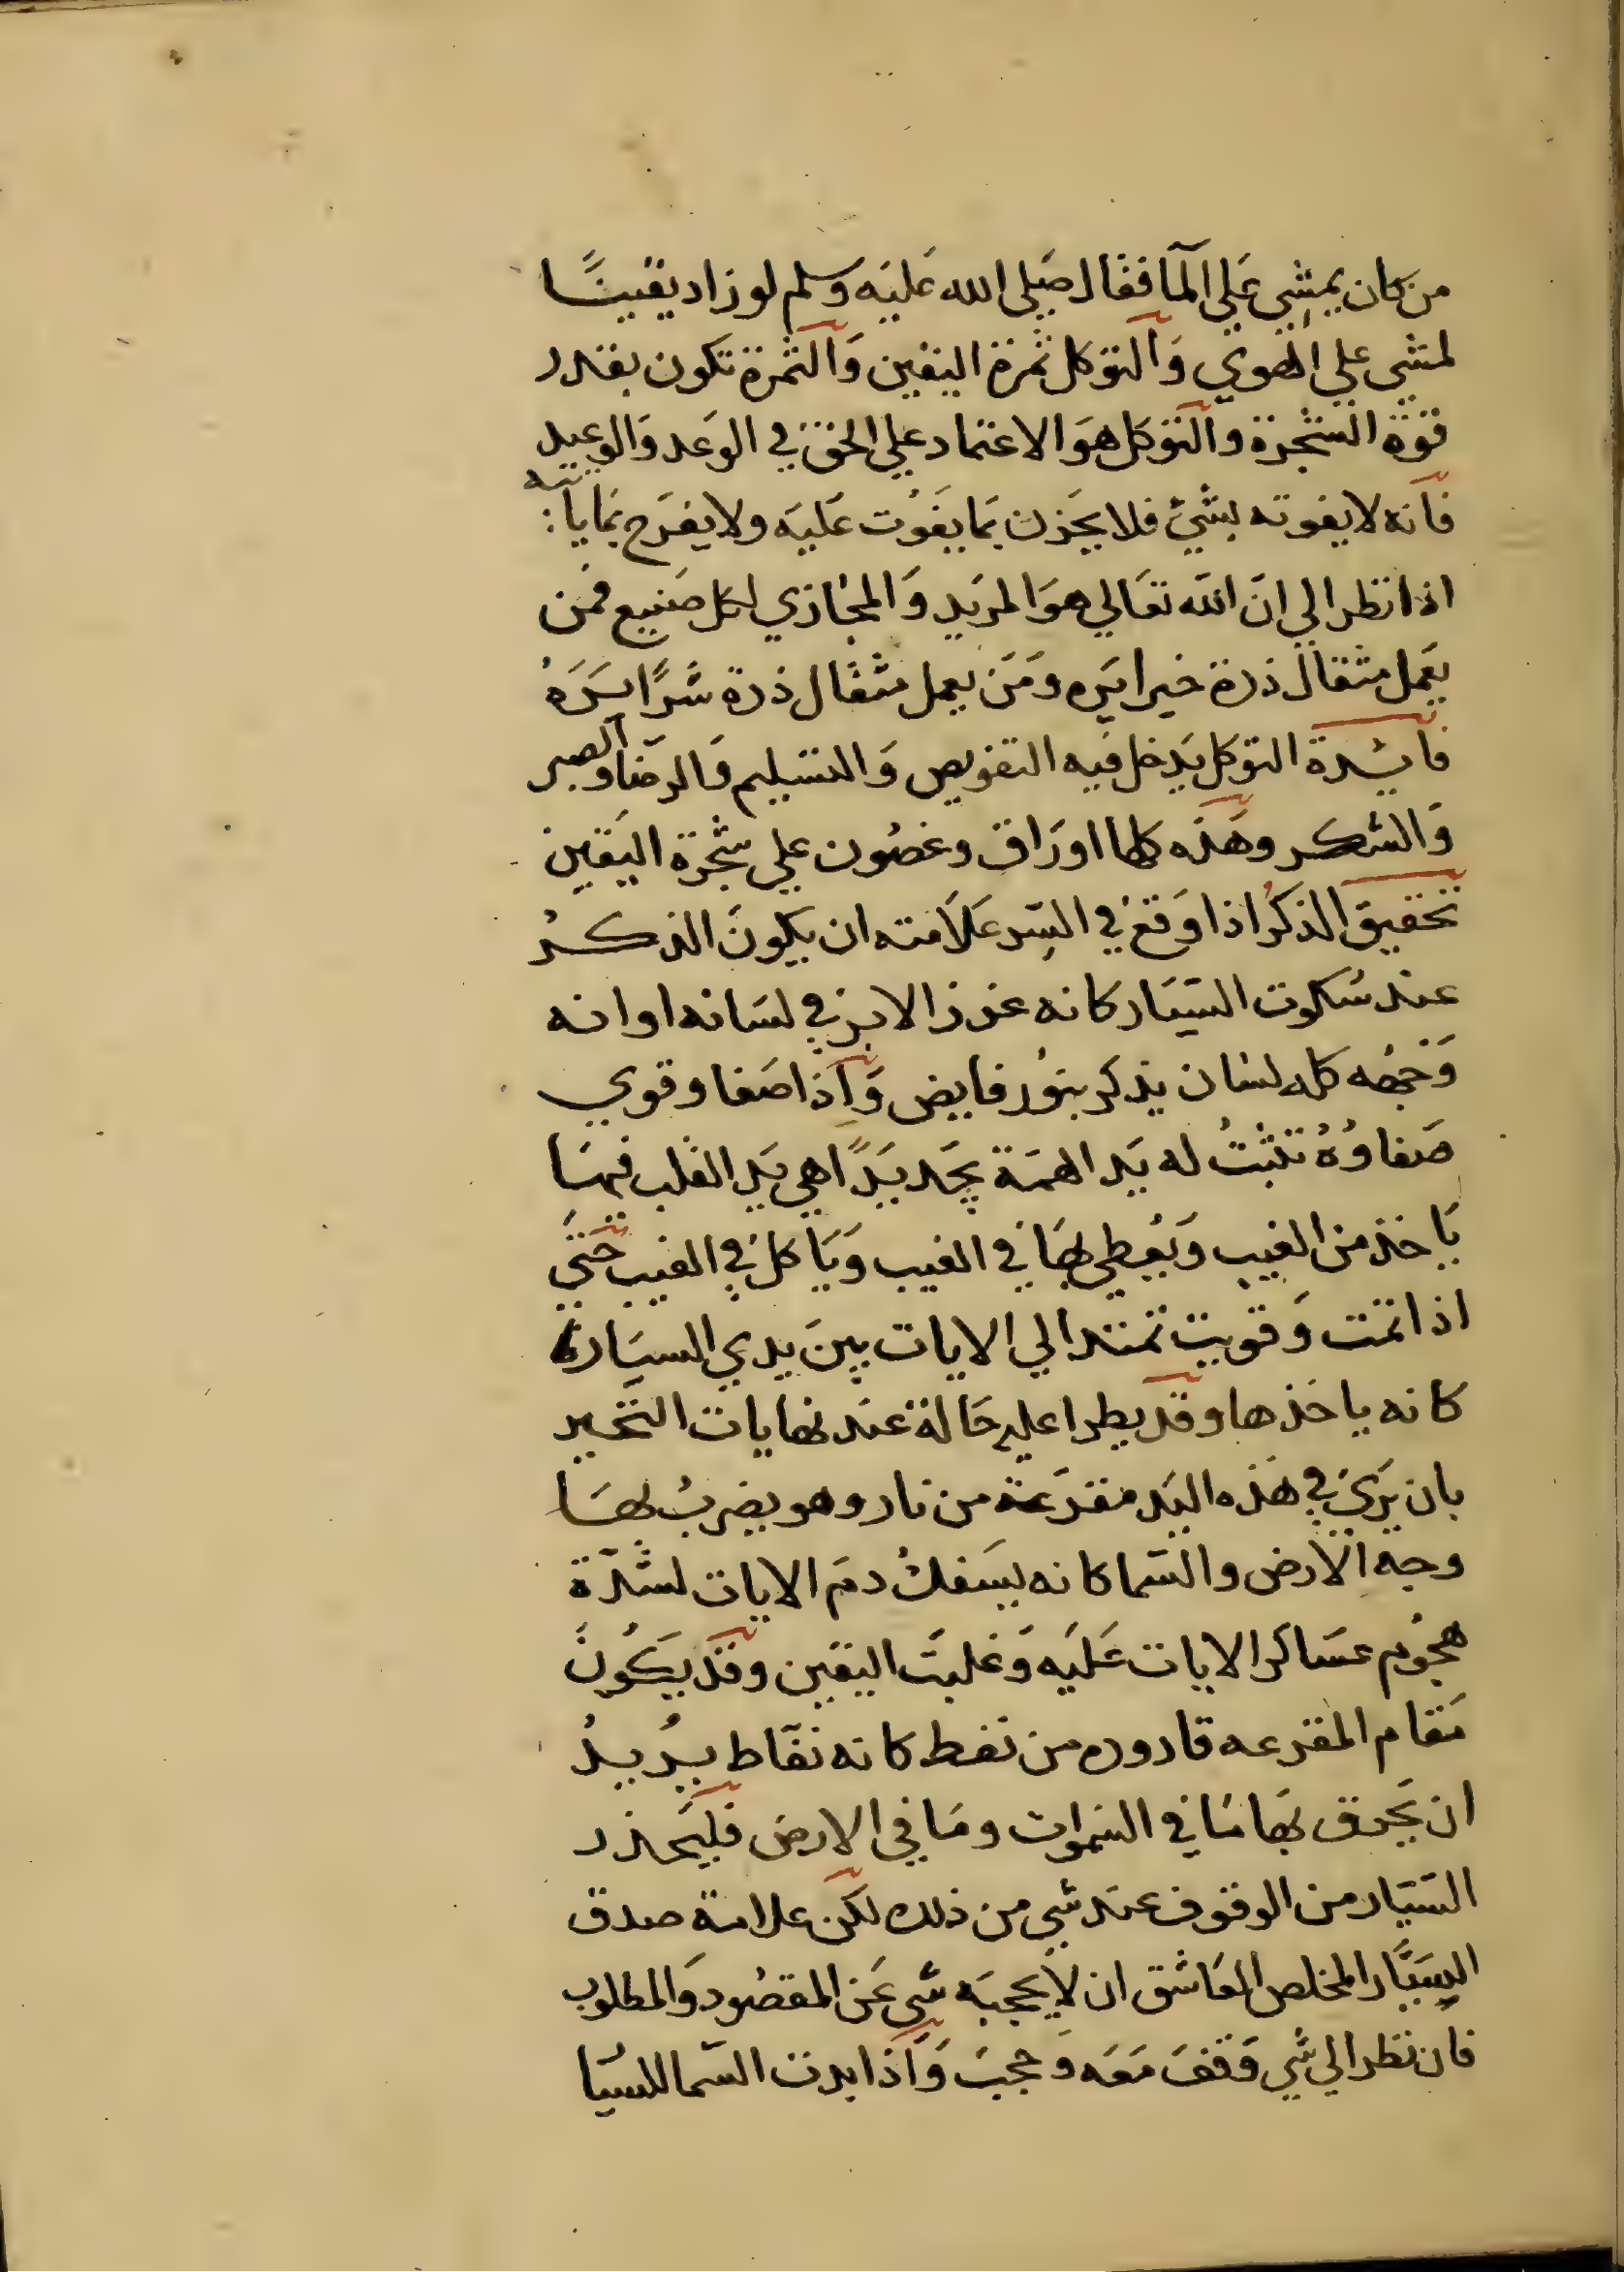 من كان يمشي علي المآ فقال صلي الله عليه وسلم لو زاد يقينًا
لمشي علي الهوي وَالتوكل ثمرة اليقين وَالثمرة تكون بقدر
قوة الشجرة والتوكل هوَ الاعتماد علي الحق في الوَعد وَالوعيد
فانه لا يفوته بشيء فلا يحزن بمَا يفوُت عَليَه ولا يفرَح بمَا ياتيه
اذا نظر الي انّ الله تعَالي هوَ المريَد وَالمجازي لكل صَنيع فمن
يعَمل مثقال ذرة خيرا يَره ومَنَ يعمل مثقال ذرة شرًا يَرَهُ
فايدة التوكل يَدخل فيه التفويض وَالتسليم وَالرضَا والصبر
وَالشكر وهَذه كلها اورَاق وغصُون علي شجرة اليَقين
تحقيق الذكرُ اذا وَقعَ في السِّر عَلاَمته ان يكونَ الذكــرُ
عند سُكوت السيَّار كانه غرز الابر في لسَانه او انه
وَجهُه كله لسَان يذكر بنوُر فايض وَاذا صَفا وقوي
صَفاوُهُ تثبتُ له يَد الهمَة يجَد يَدًا هي يَد القلب فبهَا
يَاخذ من الغيب وَيُعطي بهَا في الغيب وَيَاكل في الغيب حَتّي
اذا تمت وَقويت تمتد الي الايات بينَ يدي السيَارة
كانه ياخذها وقد يطرا عليه حَالة عند نهايات التحير
بان يرَيَ في هَذه اليَد مقرَعة من نار وهو يضربُ بهَا
وجه الارض والسّما كانه يسَفكُ دمَ الايات لشدّة
هجوُم عسَاكر الايات عَليَه وَغلبَت اليقين وقد يَكُونُ
مَقام المقرعه قاروره من نفط كانه نفّاط يُريدُ
ان يحَرق بهَا مَا في السموات ومَا في الارض فليَحذر
السَيّار من الوقوف عند شي من ذلك لكن علامة صدق
السَيَّار المخلص العَاشق ان لا يحجبَه شي عَن المقصُود وَالمطلوب
فان نظر الي شي وَقفَ مَعَه وَحجبَ وَاذا بدت السّما للسَيا